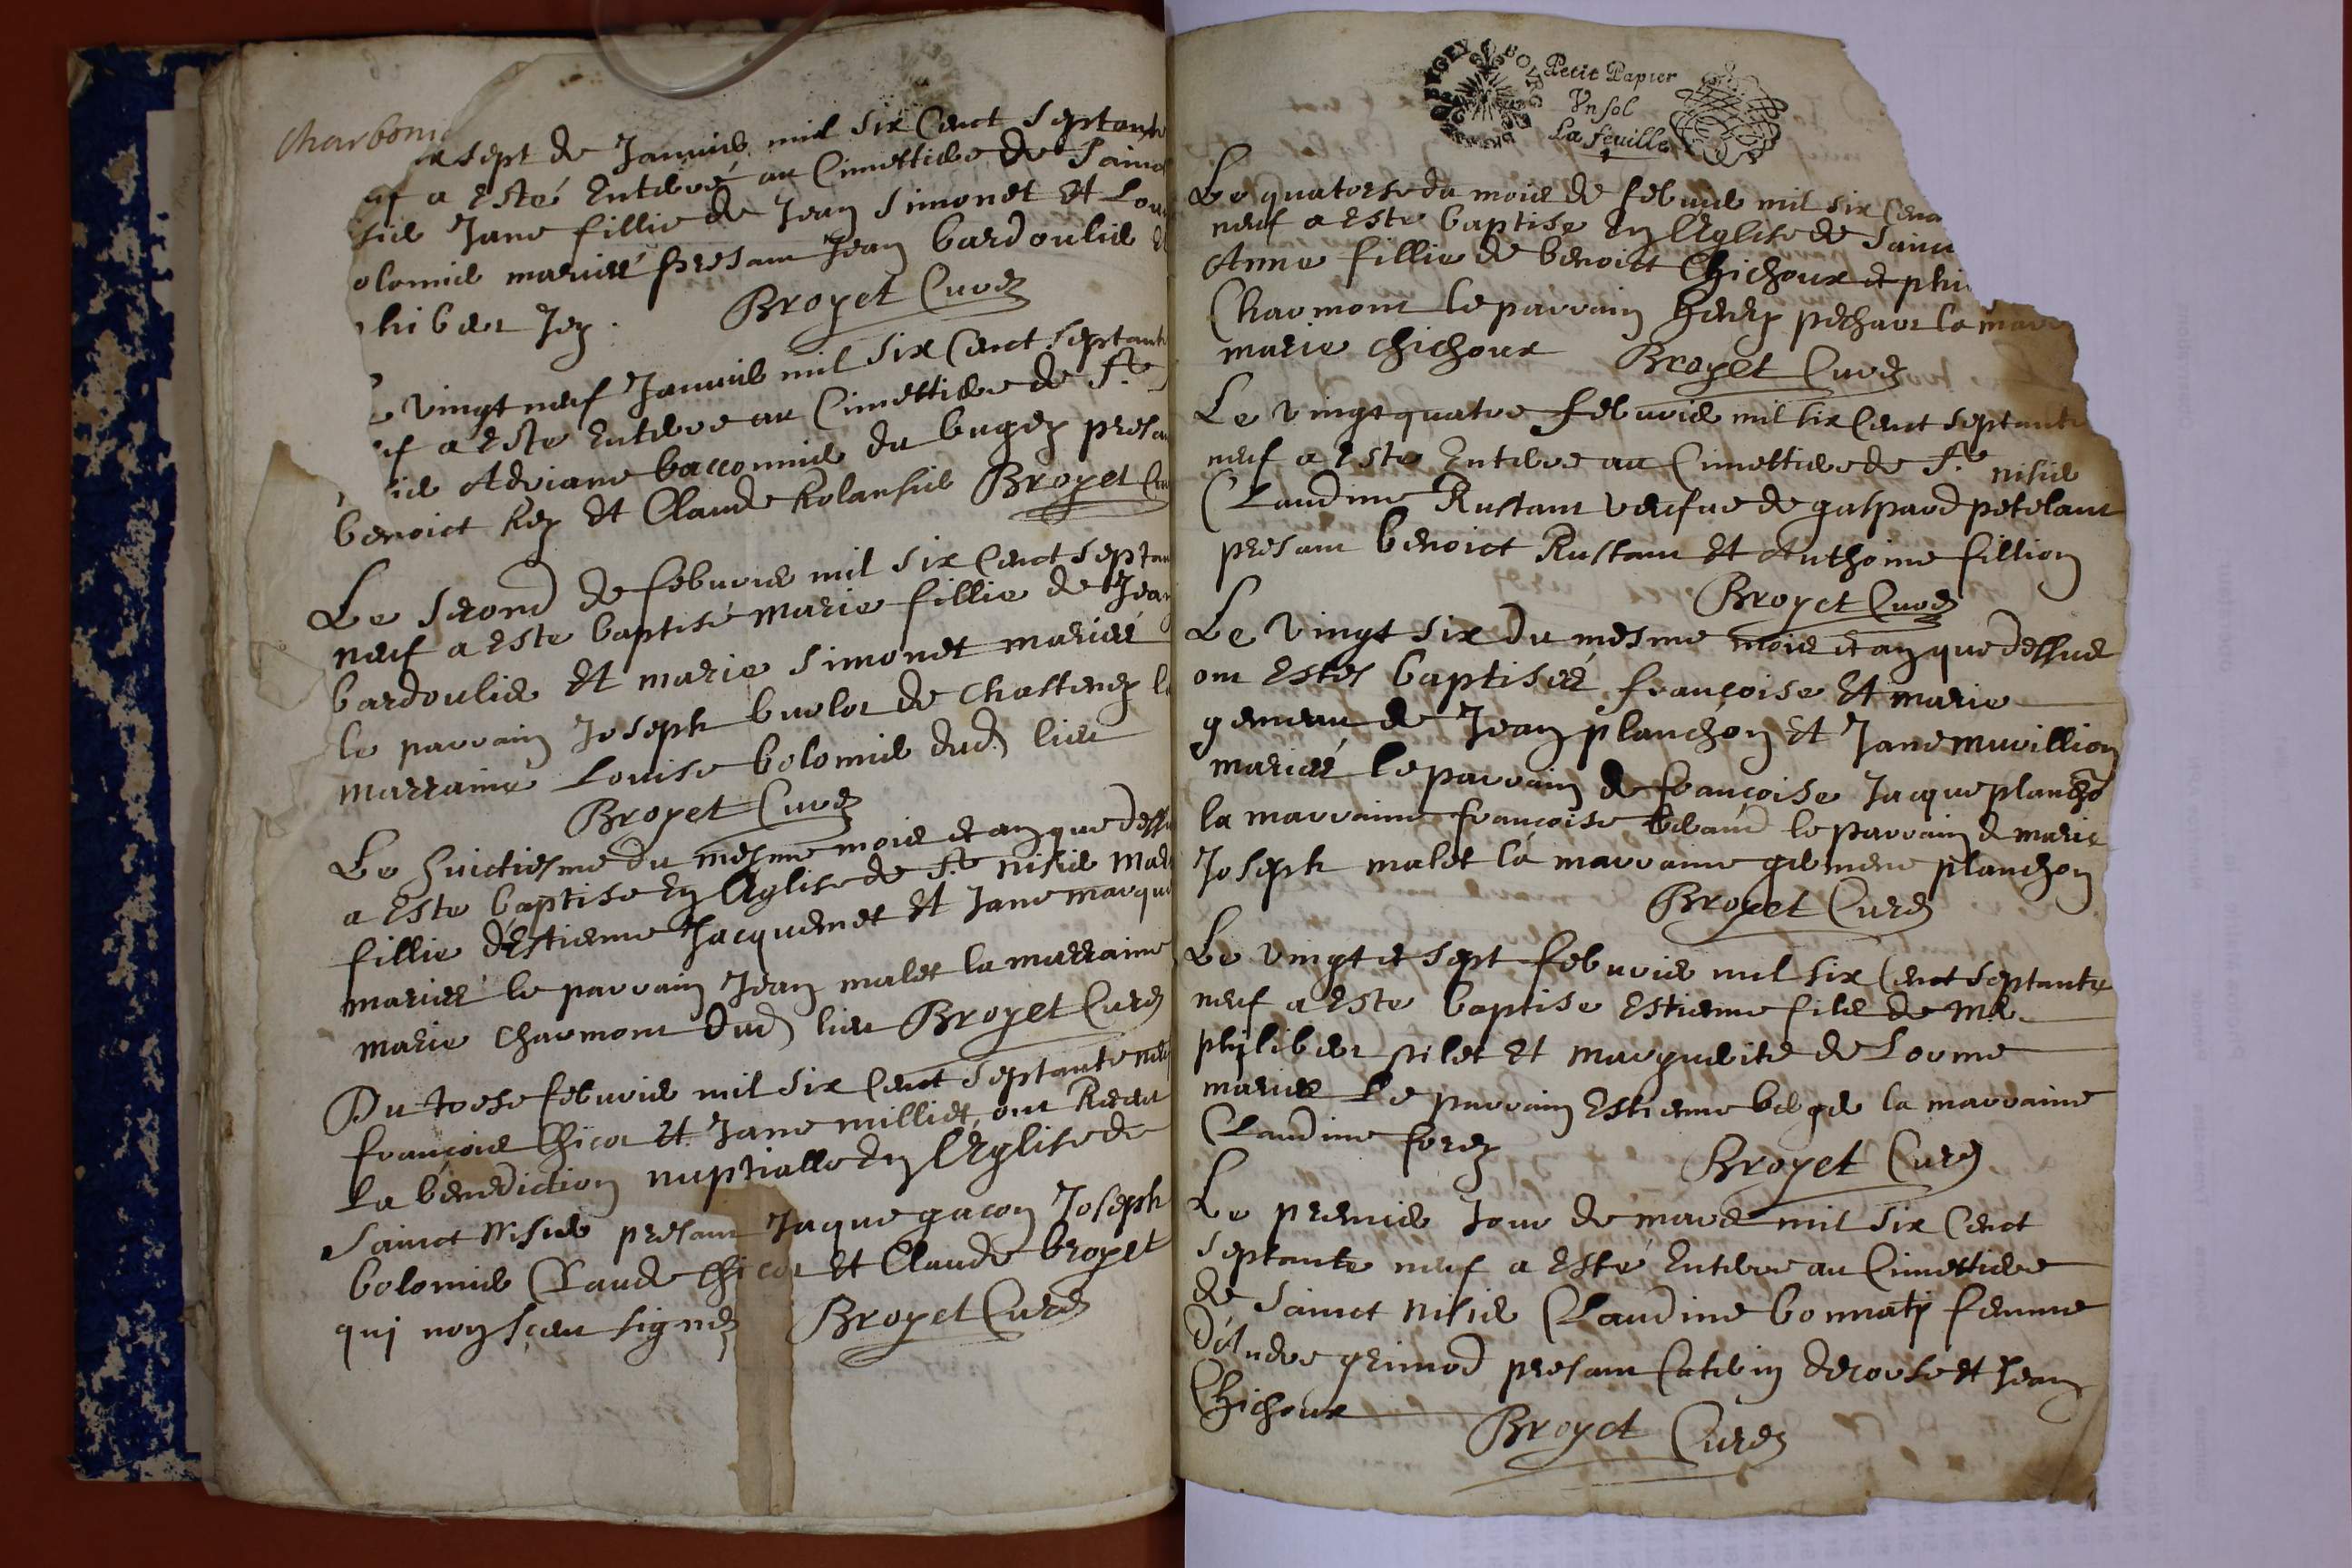 sept de Januier mil six Cent septante
a esté Enterré au Cimettiere de Sainct
Jane fillie de Jean Simonet Et
olomier mariés presant Jean bardoulier
hibert Jey. Broyet Curé
vingt neuf Januier mil six Cent septante
a esté Enterré au Cimettiere de St
Adriane baccomier du bugey presant
benoict Rey Et Claude Rolansier Broyet
Le second de febvrier mil six Cent septante
neuf a este baptisé marie fillie de Jean
bardoulier Et marie simonet mariés
le parrain Joseph buelot de Chasteney
marraine Louise bolomier dud. lieu
Broyet Curé
Le huictiesme du mesme mois et an que dessus
a este baptise En l'Eglise de St nisier
fillie d'Estienne Jacquemet Et Jane
mariés le parrain Jean malet la marraine
marie Charmont dud. lieu Broyet Curé
Du trese febvrier mil six Cent septante neuf
françois Chicot Et Jane milliet, ont Receu
La benediction nuptialle En l'Eglise de
Sainct Nisier presant Jaque gacon Joseph
bolomier Claude Chicot Et Claude broyet
qui non sceu signer Broyet Curé
Petit Papier
Vn sol
La feuille
Le quatorse du mois de febvrier mil six Cent
neuf a este baptise En l'Eglise de Sainct
Anne fillie de benoict Chichoux et
Charmont le parrain henry pechart la
marie Chichoux Broyet Curé
Le vingt quatre febvrier mil six Cent septante
neuf a este Enterre au Cimettiere de St nisier
Claudine Rustant veufue de gaspard petelant
presant benoict Rustant Et Anthoine fillion
Broyet Curé
Le vingt six du mesme mois et an que dessus
ont estés baptisés françoise Et marie
gemeau de Jean planchon Et Jane muvillion
mariés le parrain de françoise Jacque plancho
la marraine françoise le parrain d marie
Joseph malet la marraine planchon
Broyet Curé
Le vingt et sept febvrier mil six Cent septante
neuf a este baptise Estienne fils de Me
philibert pilet Et marguerite de Lorme
mariés Le parrain Estienne berger la marraine
Claudine forey Broyet Curé
Le premier Jour de mars mil six Cent
septante neuf a esté Enterre au Cimettiere
de Sainct Nisier Claudine bonnaty femme
d'Andre grimod presant Caterin derouse Et Jean
Chichoux Broyet Curé